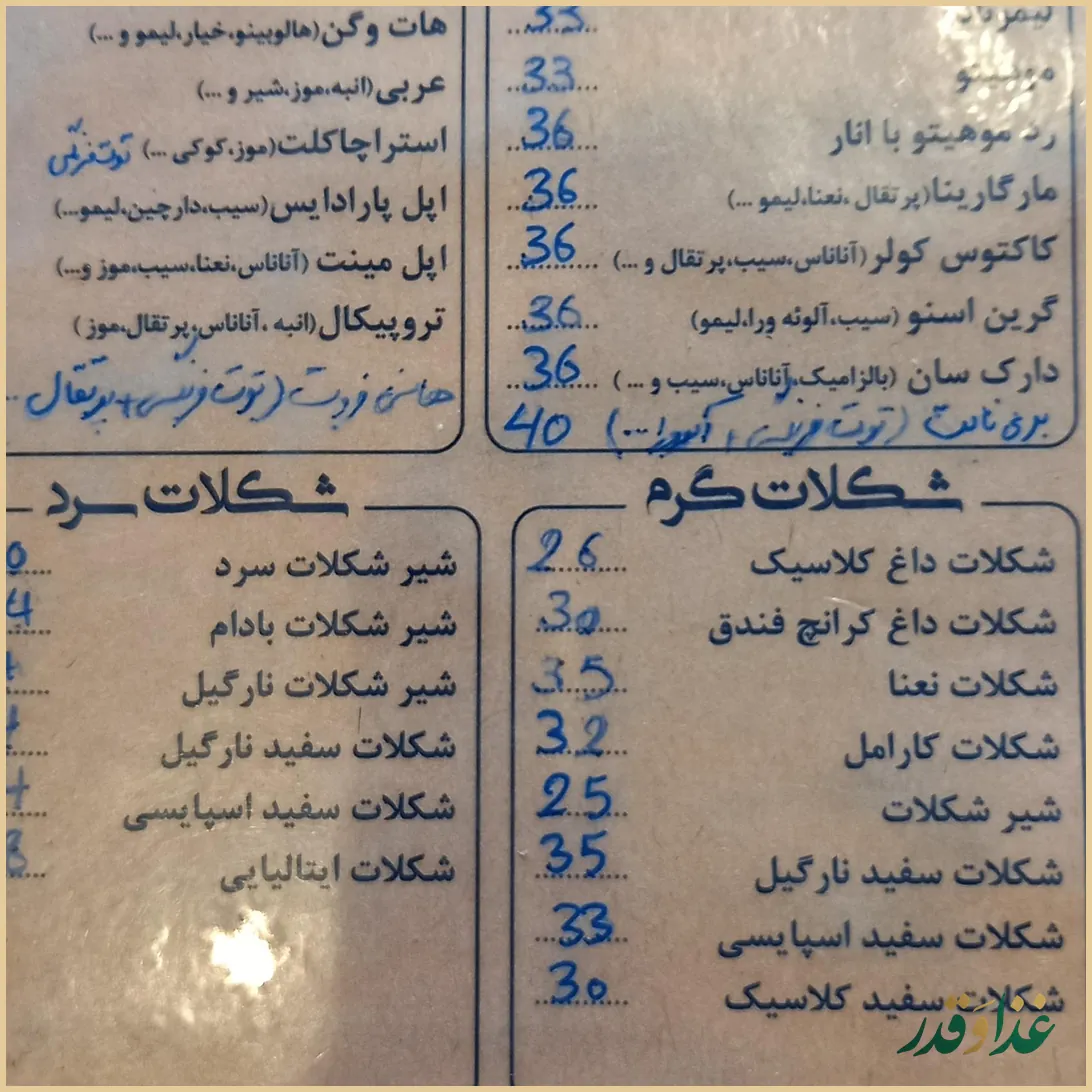 لیموناد 33
موهیتو 33
رد موهیتو با انار 36
مارگارینا(پرتقال ،نعنا،لیمو ...) 36
کاکتوس کولر(آناناس،سیب،پرتقال و ...) 36
گرین اسنو (سیب،آلوئه ورا،لیمو) 36
دارک سان (بالزامیک،آناناس،سیب و ... ) 36
بری نایت (توت فرنگی + آلوورا ...) 40
هات وگن(هالوپینو،خیار،لیمو و ...)
عربی(انبه،موز،شیر و ...)
استراچاکلت(موز،کوکی ...) توت فرنگی
اپل پارادایس(سیب،دارچین،لیمو...)
اپل مینت (آناناس،نعنا،سیب،موز و...)
تروپیکال(انبه ، آناناس،پرتقال،موز )
(توت فرنگی + پرتقال ..
شکلات گرم
شکلات داغ کلاسیک 26
شکلات داغ کرانچ فندق 30
شکلات نعنا 35
شکلات کارامل 32
شیر شکلات 25
شکلات سفید نارگیل 35
شکلات سفید اسپایسی 33
شکلات سفید کلاسیک 30
شکلات سرد
شیر شکلات سرد
شیر شکلات بادام
شیر شکلات نارگیل
شکلات سفید نارگیل
شکلات سفید اسپایسی
شکلات ایتالیایی
غذا و قدر